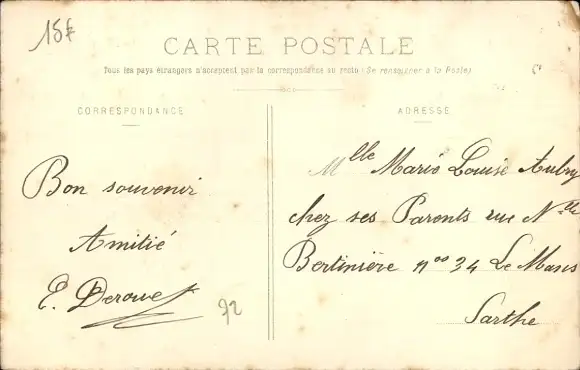 15f
CARTE POSTALE
Tous les pays étrangers n'acceptent pas la correspondance au recto (Se renseigner à la Poste)
CORRESPONDANCE
ADRESSE
Bon souvenir
Amitié
E. Derouet
92
Mlle Marie Louise Aubry
chez ses Parents rue Nlle
Bertinière nos 34 Le Mans
Sarthe